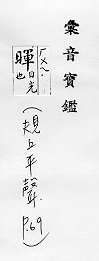 彙音寶鑑
ㄏㄨㄟ
暉日光也
(規上平聲 P.69)